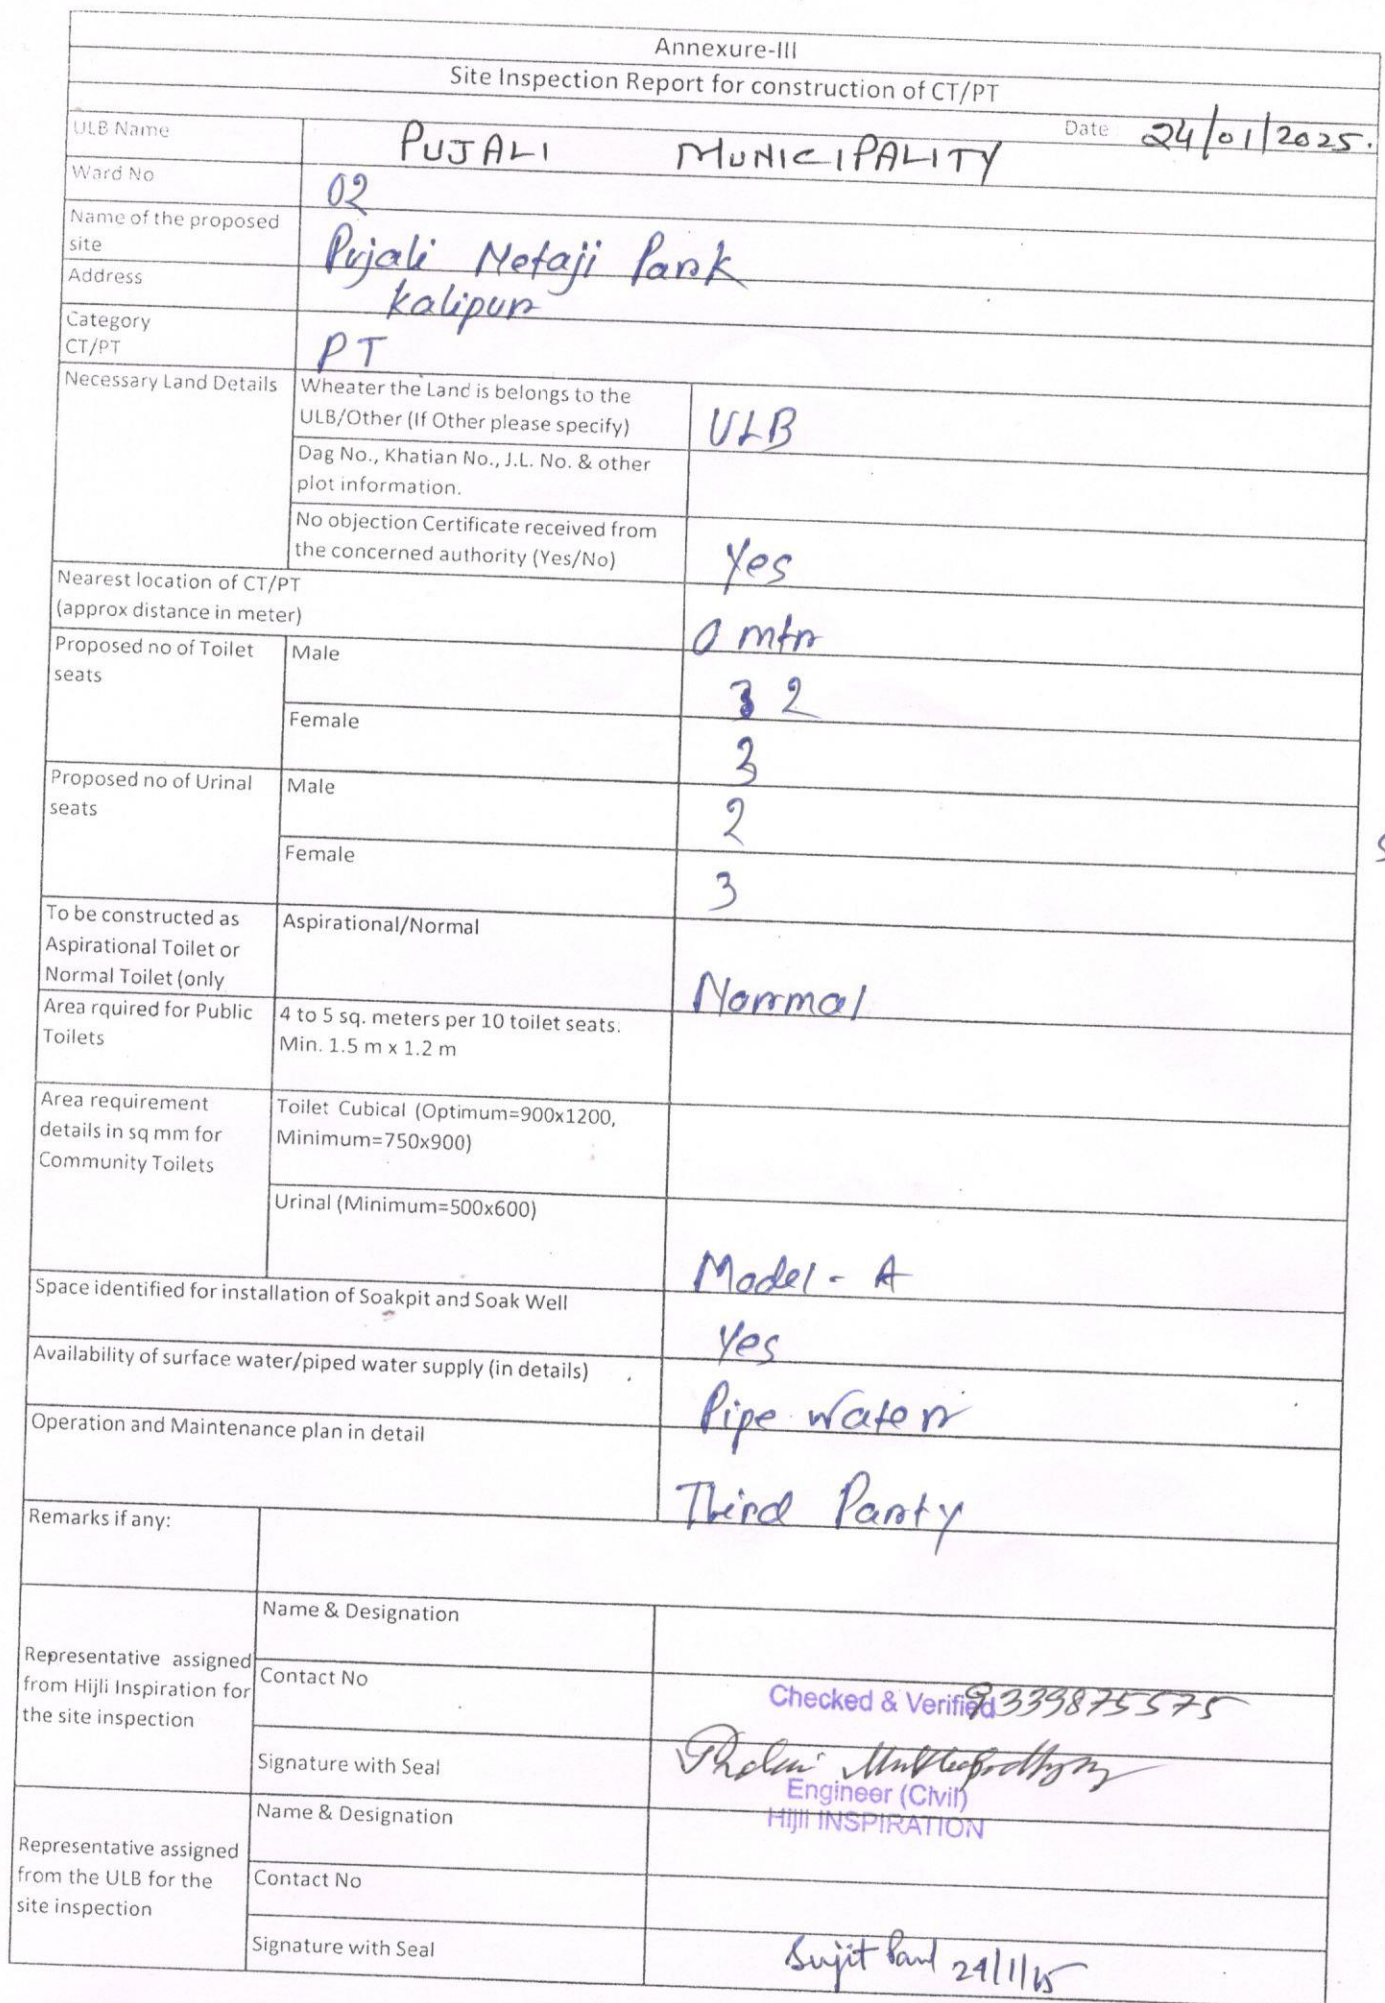 Annexure-III
Site Inspection Report for construction of CT/PT
Date 24/01/2025.
ULB Name PUJALI MUNICIPALITY
Ward No 02
Name of the proposed
site Pujali Netaji Park
Address Kalipur
Category
CT/PT PT
Necessary Land Details
Wheater the Land is belongs to the
ULB/Other (If Other please specify) ULB
Dag No., Khatian No., J.L. No. & other
plot information.
No objection Certificate received from
the concerned authority (Yes/No) Yes
Nearest location of CT/PT
(approx distance in meter) 0 mtr
Proposed no of Toilet
seats
Male 2
Female 3
Proposed no of Urinal
seats
Male 2
Female 3
To be constructed as
Aspirational Toilet or
Normal Toilet (only
Aspirational/Normal Normal
Area rquired for Public
Toilets
4 to 5 sq. meters per 10 toilet seats.
Min. 1.5 m x 1.2 m
Area requirement
details in sq mm for
Community Toilets
Toilet Cubical (Optimum=900x1200,
Minimum=750x900)
Urinal (Minimum=500x600)
Model - A
Space identified for installation of Soakpit and Soak Well Yes
Availability of surface water/piped water supply (in details) Pipe water
Operation and Maintenance plan in detail Third Party
Remarks if any:
Representative assigned
from Hijli Inspiration for
the site inspection
Name & Designation
Contact No 9339875575
Checked & Verified
Signature with Seal
Engineer (Civil)
HIJli INSPIRATION
Representative assigned
from the ULB for the
site inspection
Name & Designation
Contact No
Signature with Seal Sujit Paul